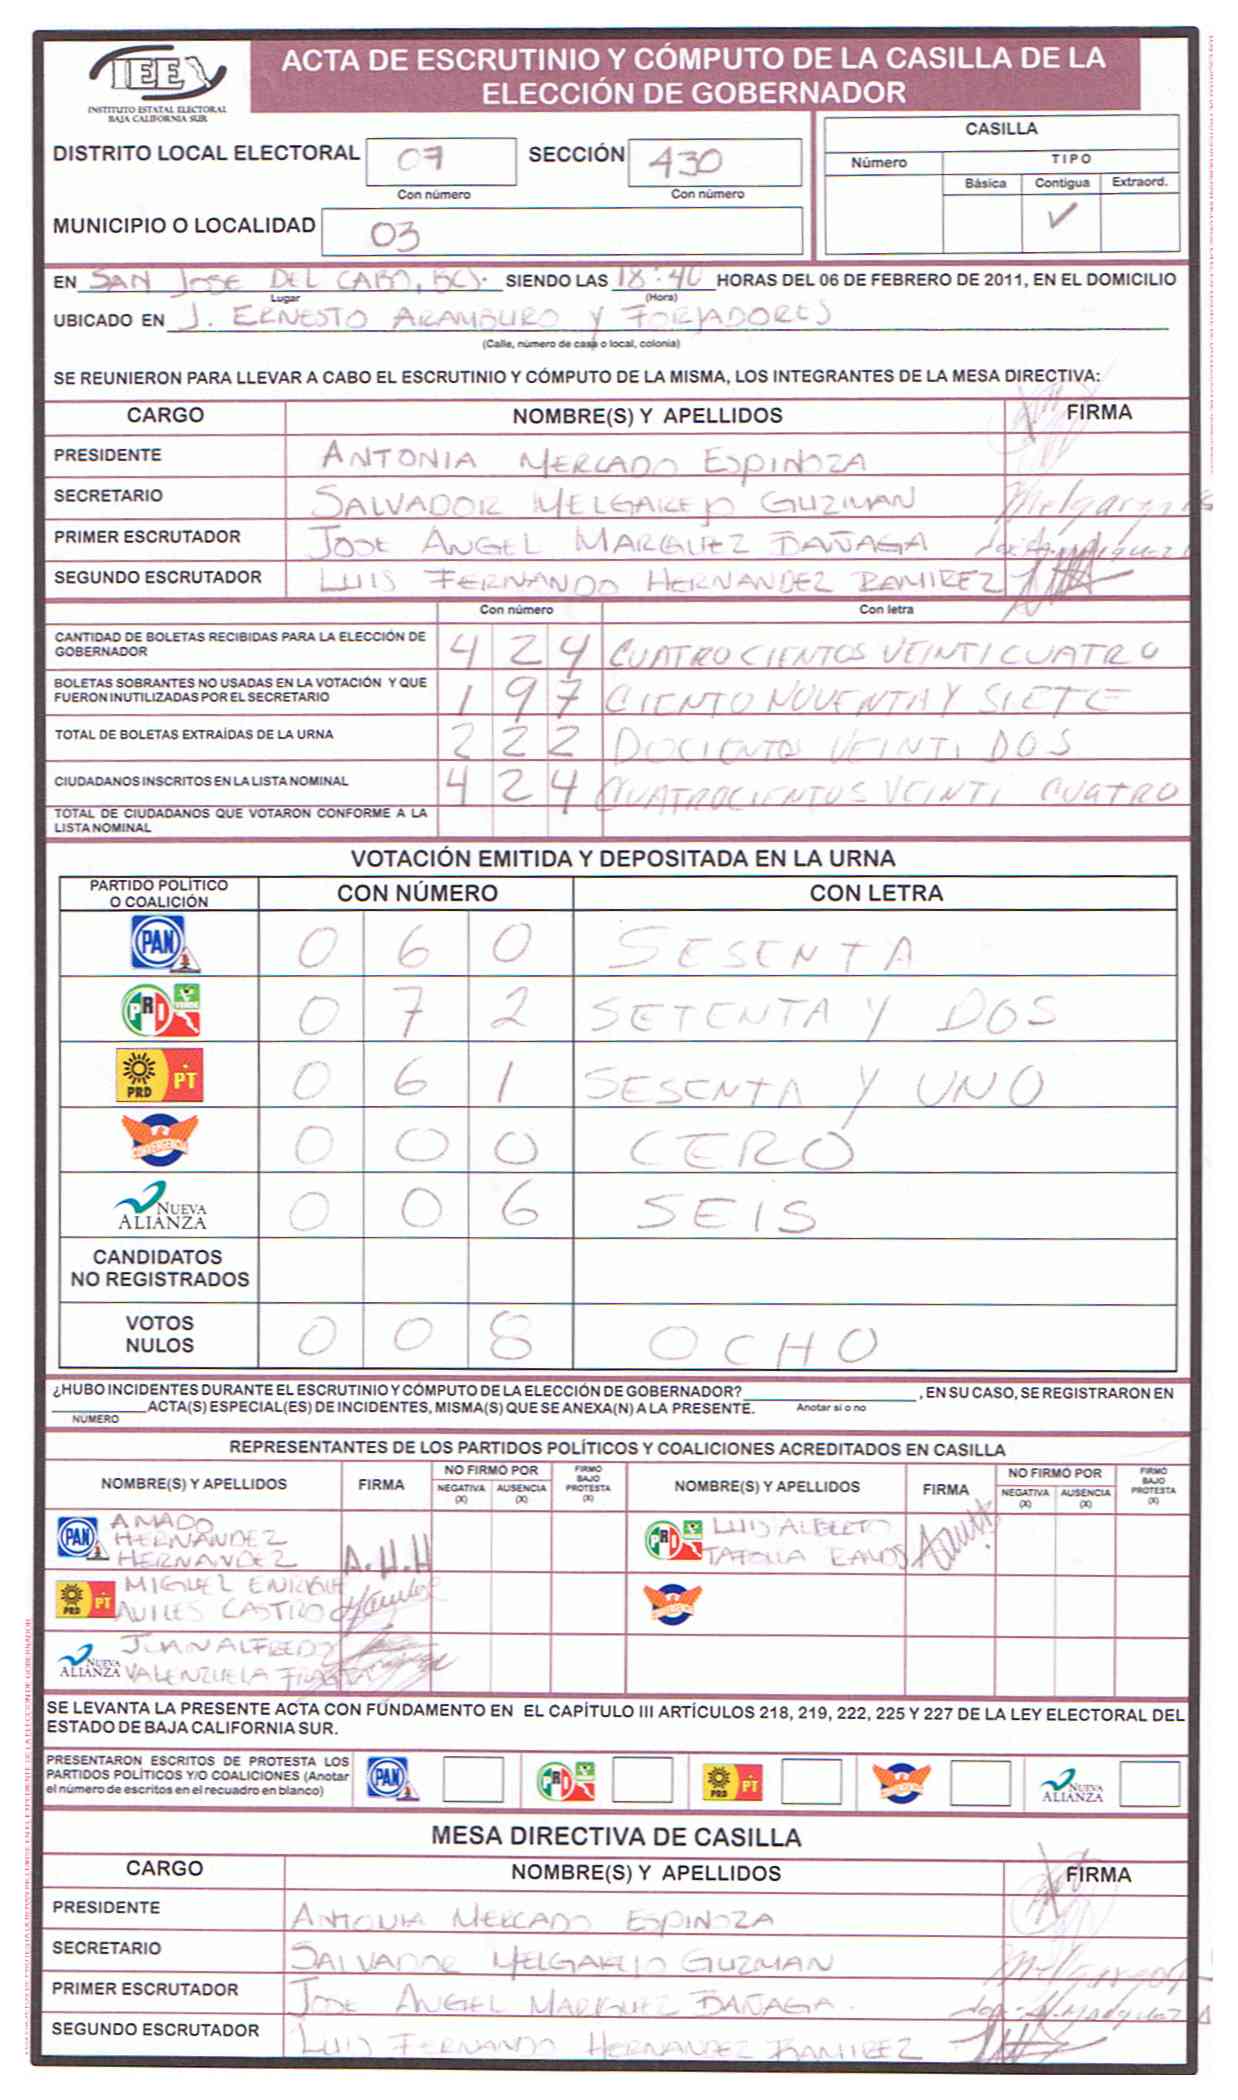 IEE
INSTITUTO ESTATAL ELECTORAL
BAJA CALIFORNIA SUR
ACTA DE ESCRUTINIO Y CÓMPUTO DE LA CASILLA DE LA
ELECCIÓN DE GOBERNADOR
DISTRITO LOCAL ELECTORAL 07 SECCIÓN 430
Con número Con número
MUNICIPIO O LOCALIDAD 03
CASILLA
Número TIPO
Básica Contigua Extraord.
✓
EN SAN JOSE DEL CABO, BCS. SIENDO LAS 18:40 HORAS DEL 06 DE FEBRERO DE 2011, EN EL DOMICILIO
Lugar (Hora)
UBICADO EN J. ERNESTO ARAMBURO Y FORJADORES
(Calle, número de casa o local, colonia)
SE REUNIERON PARA LLEVAR A CABO EL ESCRUTINIO Y CÓMPUTO DE LA MISMA, LOS INTEGRANTES DE LA MESA DIRECTIVA:
CARGO NOMBRE(S) Y APELLIDOS FIRMA
PRESIDENTE ANTONIA MERCADO ESPINOZA
SECRETARIO SALVADOR MELGAREJO GUZMAN
PRIMER ESCRUTADOR JOSE ANGEL MARQUEZ BAÑAGA
SEGUNDO ESCRUTADOR LUIS FERNANDO HERNANDEZ RAMIREZ
Con número Con letra
CANTIDAD DE BOLETAS RECIBIDAS PARA LA ELECCIÓN DE
GOBERNADOR 424 CUATROCIENTOS VEINTICUATRO
BOLETAS SOBRANTES NO USADAS EN LA VOTACIÓN Y QUE
FUERON INUTILIZADAS POR EL SECRETARIO 197 CIENTO NOVENTA Y SIETE
TOTAL DE BOLETAS EXTRAÍDAS DE LA URNA 222 DOCIENTO VEINTI DOS
CIUDADANOS INSCRITOS EN LA LISTA NOMINAL 424 CUATROCIENTOS VEINTI CUATRO
TOTAL DE CIUDADANOS QUE VOTARON CONFORME A LA
LISTA NOMINAL
VOTACIÓN EMITIDA Y DEPOSITADA EN LA URNA
PARTIDO POLÍTICO
O COALICIÓN CON NÚMERO CON LETRA
PAN 0 6 0 SESENTA
PRI VERDE 0 7 2 SETENTA Y DOS
PRD PT 0 6 1 SESENTA Y UNO
CONVERGENCIA 0 0 0 CERO
NUEVA ALIANZA 0 0 6 SEIS
CANDIDATOS
NO REGISTRADOS
VOTOS
NULOS 0 0 8 OCHO
¿HUBO INCIDENTES DURANTE EL ESCRUTINIO Y CÓMPUTO DE LA ELECCIÓN DE GOBERNADOR? , EN SU CASO, SE REGISTRARON EN
ACTA(S) ESPECIAL(ES) DE INCIDENTES, MISMA(S) QUE SE ANEXA(N) A LA PRESENTE. Anotar si o no
NÚMERO
REPRESENTANTES DE LOS PARTIDOS POLÍTICOS Y COALICIONES ACREDITADOS EN CASILLA
NOMBRE(S) Y APELLIDOS FIRMA NO FIRMÓ POR FIRMÓ BAJO PROTESTA (X) NOMBRE(S) Y APELLIDOS FIRMA NO FIRMÓ POR FIRMÓ BAJO PROTESTA (X)
NEGATIVA (X) AUSENCIA (X) NEGATIVA (X) AUSENCIA (X)
PAN AMADO
HERNANDEZ
HERNANDEZ A.H.H
PRI LUIS ALBERTO
PRD PT MIGUEL ENRIQUE
AVILES CASTRO
NUEVA ALIANZA JUAN ALFREDO
VALENZUELA
SE LEVANTA LA PRESENTE ACTA CON FUNDAMENTO EN EL CAPÍTULO III ARTÍCULOS 218, 219, 222, 225 Y 227 DE LA LEY ELECTORAL DEL
ESTADO DE BAJA CALIFORNIA SUR.
PRESENTARON ESCRITOS DE PROTESTA LOS
PARTIDOS POLÍTICOS Y/O COALICIONES (Anotar
el número de escritos en el recuadro en blanco)
PAN PRI PRD PT NUEVA ALIANZA
MESA DIRECTIVA DE CASILLA
CARGO NOMBRE(S) Y APELLIDOS FIRMA
PRESIDENTE ANTONIA MERCADO ESPINOZA
SECRETARIO SALVADOR MELGAREJO GUZMAN
PRIMER ESCRUTADOR JOSE ANGEL MARQUEZ BAÑAGA.
SEGUNDO ESCRUTADOR LUIS FERNANDO HERNANDEZ RAMIREZ